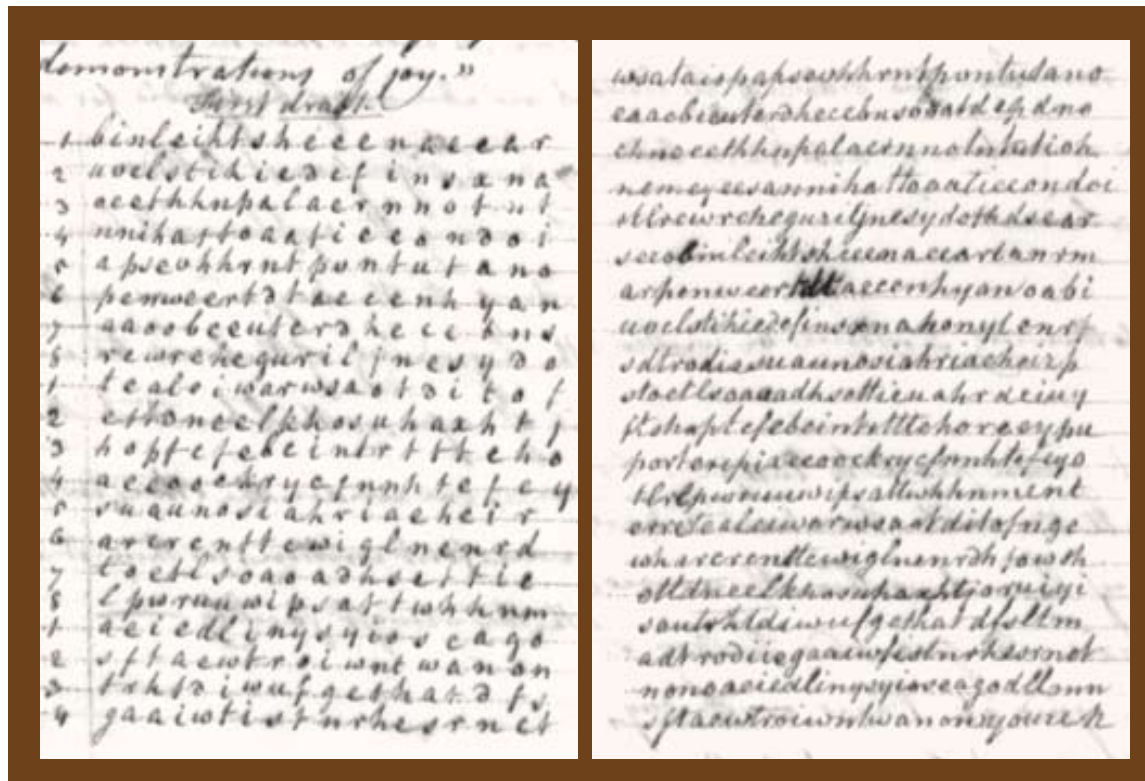 demonstrations of joy."
First draft.
1 binleihtsheeenaeear
2 uvelstihiedefinsxna
3 oeethhnpalaernnotut
4 nnihattoaatieeondoi
5 apseohhrntpontutano
6 penweertdtaeeenhyan
7 aaoobeeuterdheeetns
8 rewreheguriljnesydo
1 tealeiwarwsaotditof
2 ettoneelkhosuhaxhtj
3 hoptefebeintrttteho
4 aeeooekryefnnhtefey
5 suaunosiahriaeheir
6 arerenttewiglnenrd
7 toetlsoaoadhsettie
8 lpwruuwipsattwhhnm
1 aeiedlinysyioseago
2 sftaewtroiwntwanon
3 trhtdiwufgethatdfs
4 gaaiwtistnrhesrnet
wsataispapseohhrntpontutano
eaaobeeuterdheeebnsooatdepdno
ehnoeethhnpalaernnolntatioh
nemeyeesannihattoaatieeondoi
stlrewreheguriljnesydothdsear
seeobinleihtsheeenaeeartanrm
arponweertdttaeeenhyanoabi
uvelstihiedefinsxnahonylenrf
sdtrodiasuaunosiahriaeheirp
stoetlsoaoadhsettieuahrdeiuy
ftshoptefebeintettteboreeypu
portorepiaeeooekryefnnhtefeyo
tlrlpwruuwipsattwhhnment
erretealeiwarwsaotditofnge
wharerenttewiglnenrdhjowth
ottdneelkhosuhaxhtjoruiyi
soutrhtdiwufgethatdfsltm
adtrodiiegaaiwfestnrhesrnot
nonoaeiedlinysyioseagodllmn
sftaewtroiwntwanonyourek